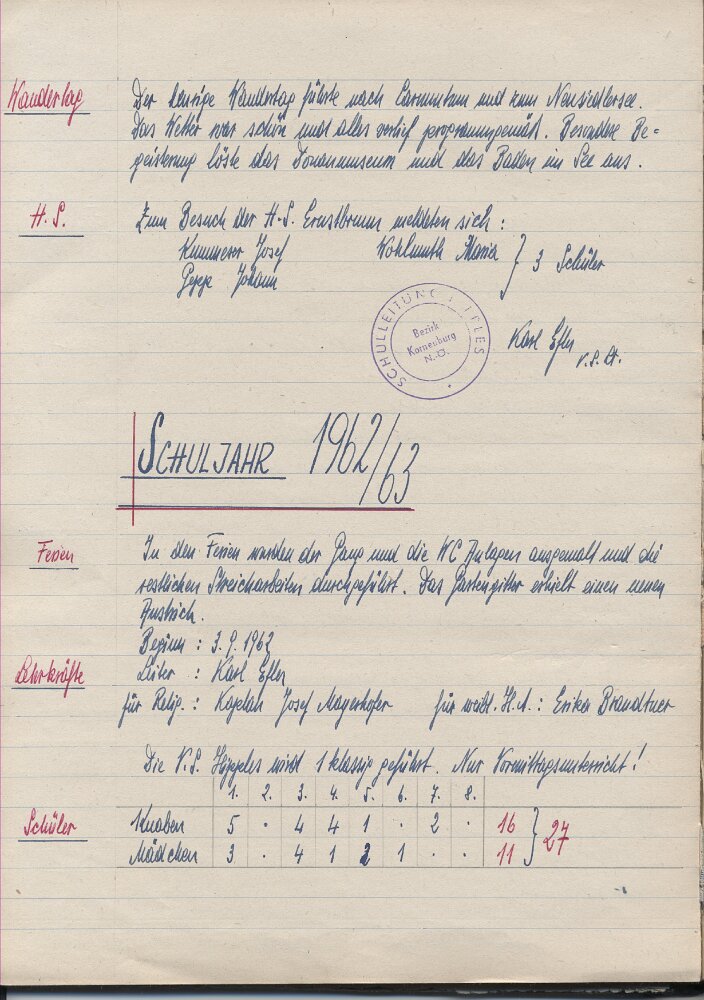 Wandertag
Der heutige Wandertag führte nach Carnuntum und zum Neusiedlersee.
Das Wetter war schön und alles verlief programmgemäß. Besondere Be=
geisterung löste das Donaumuseum und das Baden im See aus.
H. S.
Zum Besuch der H.S. Ernstbrunn meldeten sich :
Kummerer Josef Wohlmuth Maria } 3 Schüler
Johann
SCHULLEITUNG
Bezirk
Korneuburg
N.Ö.
Karl Efler
V.S.Lt.
SCHULJAHR 1962/63
Ferien
In den Ferien wurden der Gang und die WC Anlagen ausgemalt und die
restlichen Streicharbeiten durchgeführt. Das Gartengitter erhielt einen neuen
Anstrich.
Beginn : 3. 9. 1962
Lehrkräfte
Leiter : Karl Efler
für Relig. : Kaplan Josef Mayerhofer für weibl. H.A. : Erika Brandtner
Die V.S. wird 1 klassig geführt. Nur Vormittagsunterricht !
1. 2. 3. 4. 5. 6. 7. 8.
Schüler
Knaben 5 · 4 4 1 · 2 · 16 } 27
Mädchen 3 · 4 1 2 1 · · 11